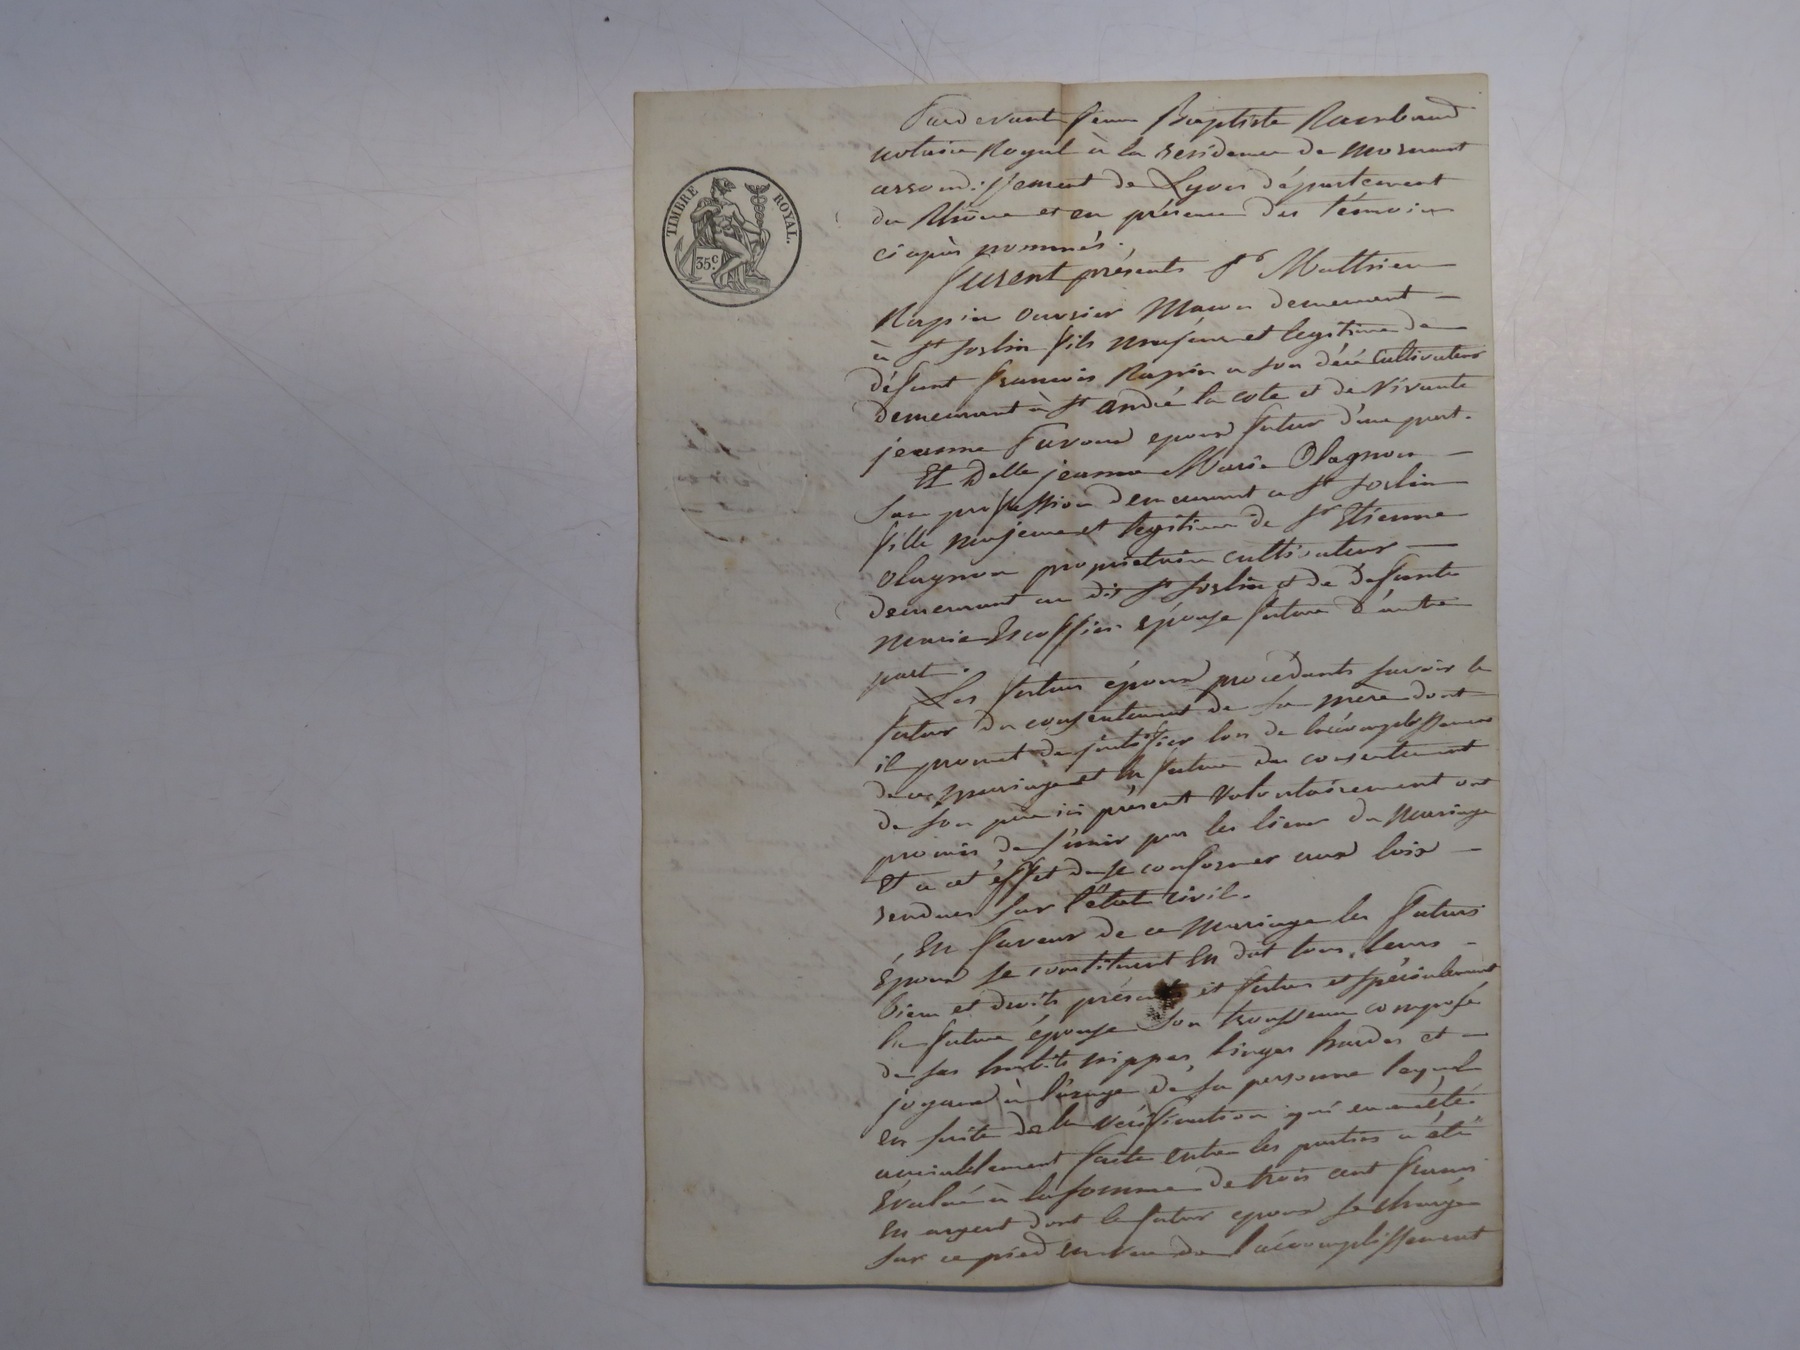 TIMBRE ROYAL.
35c.
Pardevant Jean Baptiste Rambaud
notaire Royal à la residence de mornant
arrondissement de Lyon département
du Rhône et en présence des témoins
ci après nommés.
furent présents Sr Matthieu
Rapin ouvrier Maçon demeurant
à St Sorlin fils majeur et legitime de
défunt francois Rapin a son décé cultivateur
demeurant à St andré la cote et de vivante
jeanne Favard epoux futur d'une part.
Et Delle jeanne Marie Olagnon
San profession demeurant a St Sorlin
fille majeure et legitime de Sr Etienne
Olagnon propriétaire cultivateur
demeurant au dit St Sorlin et de defunte
marie Escoffier épouse future d'autre
part.
Les futurs époux procédants savoir le
futur du consentement de sa mère dont
il promet de justifier lors de l'accomplissement
de ce mariage et la future du consentement
de son père ici présent volontairement ont
promis de s'unir par les liens du mariage
et a cet effet de se conformer aux loix
rendues sur l'état civil.
En faveur de ce mariage les futurs
époux se constituent en dot tous leurs
biens et droits présents et futurs et spécialement
la future épouse son trousseau composé
de ses habits nippes, linges hardes et
joyaux à l'usage de sa personne lequel
en suite de la vérification qui en a été
amiablement faite entre les parties a été
évalué à la somme de trois cent francs
en argent dont le futur epoux se charge
sur ce pied en vue de l'accomplissement